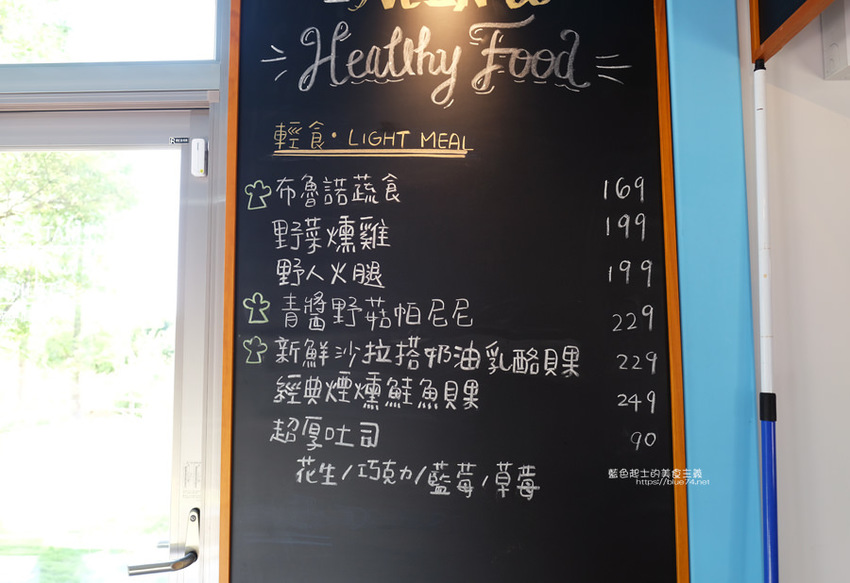 Healthy Food
輕食・LIGHT MEAL
布魯諾蔬食 169
野菜燻雞 199
野人火腿 199
青醬野菇帕尼尼 229
新鮮沙拉搭奶油乳酪貝果 229
經典煙燻鮭魚貝果 249
超厚吐司 90
花生/巧克力/藍莓/草莓
藍色起士的美食主義
https://blue74.net